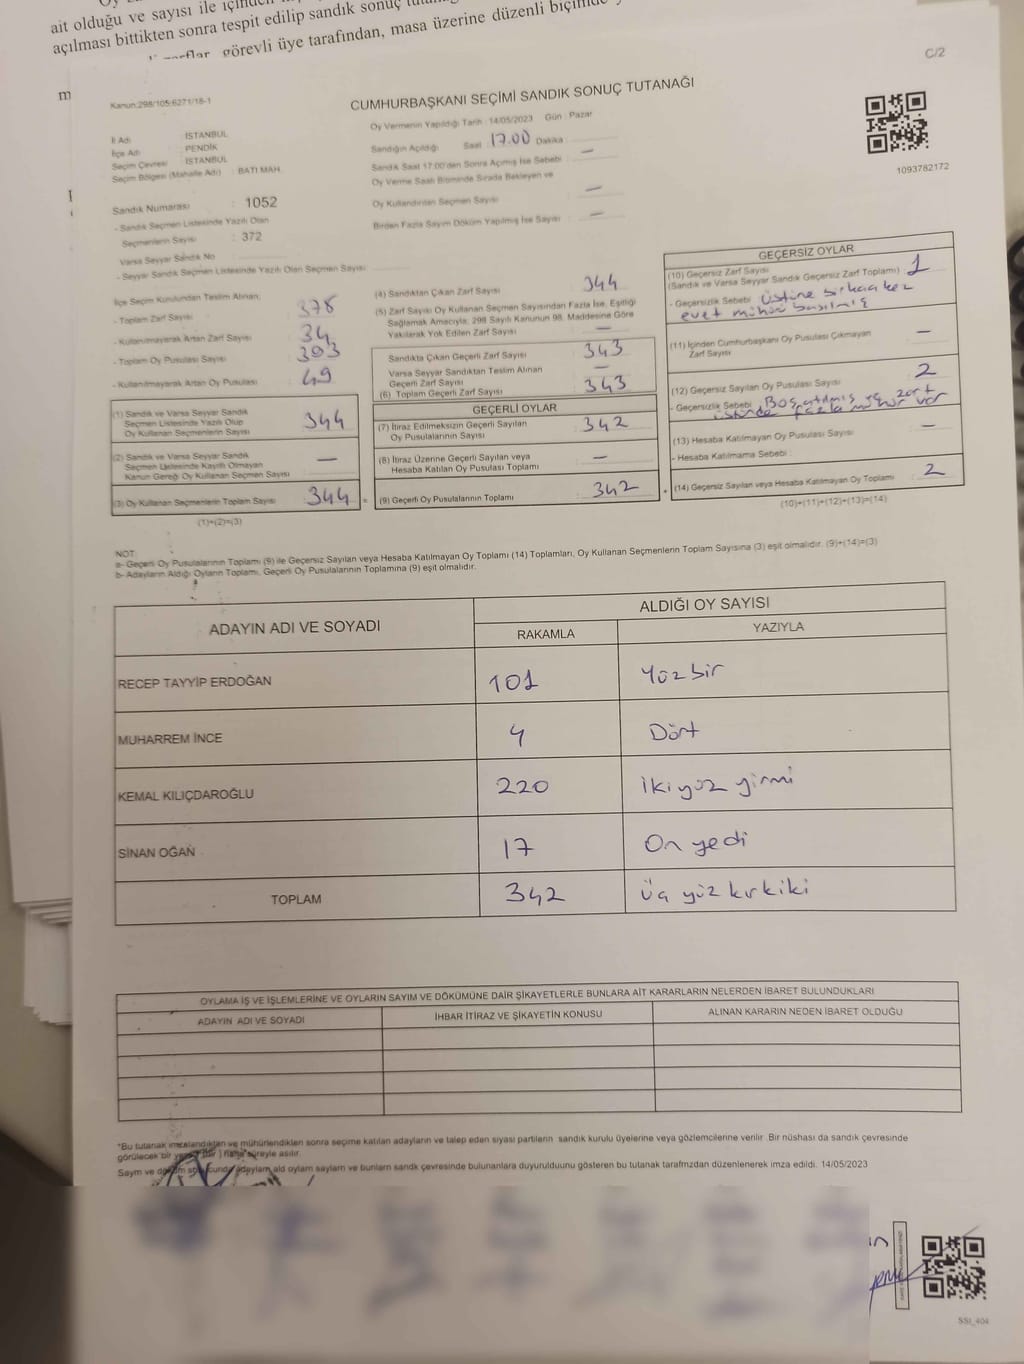 ait olduğu ve sayısı ile
açılması bittikten sonra tespit edilip sandık sonuç
görevli üye tarafından, masa üzerine düzenli biçimde
C/2
Kanun:298/105:6271/18-1
CUMHURBAŞKANI SEÇİMİ SANDIK SONUÇ TUTANAĞI
Oy Vermenin Yapıldığı Tarih : 14/05/2023 Gün : Pazar
İl Adı : İSTANBUL
İlçe Adı : PENDİK
Seçim Çevresi : İSTANBUL
Seçim Bölgesi (Mahalle Adı) : BATI MAH.
Sandığın Açıldığı Saat : 17.00 Dakika :
Sandık Saat 17:00'den Sonra Açılmış İse Sebebi : —
Oy Verme Saati Bitiminde Sırada Bekleyen ve
Oy Kullandırılan Seçmen Sayısı : —
Birden Fazla Sayım Döküm Yapılmış İse Sayısı : —
1093782172
Sandık Numarası : 1052
- Sandık Seçmen Listesinde Yazılı Olan
Seçmenlerin Sayısı : 372
Varsa Seyyar Sandık No
- Seyyar Sandık Seçmen Listesinde Yazılı Olan Seçmen Sayısı :
İlçe Seçim Kurulundan Teslim Alınan;
- Toplam Zarf Sayısı : 378
- Kullanılmayarak Artan Zarf Sayısı : 34
- Toplam Oy Pusulası Sayısı : 393
- Kullanılmayarak Artan Oy Pusulası : 49
(1) Sandık ve Varsa Seyyar Sandık
Seçmen Listesinde Yazılı Olup
Oy Kullanan Seçmenlerin Sayısı : 344
(2) Sandık ve Varsa Seyyar Sandık
Seçmen Listesinde Kayıtlı Olmayan
Kanun Gereği Oy Kullanan Seçmen Sayısı : —
(3) Oy Kullanan Seçmenlerin Toplam Sayısı : 344 =
(1)+(2)=(3)
(4) Sandıktan Çıkan Zarf Sayısı : 344
(5) Zarf Sayısı Oy Kullanan Seçmen Sayısından Fazla İse, Eşitliği
Sağlamak Amacıyla; 298 Sayılı Kanunun 98. Maddesine Göre
Yakılarak Yok Edilen Zarf Sayısı : —
Sandıkta Çıkan Geçerli Zarf Sayısı : 343
Varsa Seyyar Sandıktan Teslim Alınan
Geçerli Zarf Sayısı : —
(6) Toplam Geçerli Zarf Sayısı : 343
GEÇERLİ OYLAR
(7) İtiraz Edilmeksizin Geçerli Sayılan
Oy Pusulalarının Sayısı : 342
(8) İtiraz Üzerine Geçerli Sayılan veya
Hesaba Katılan Oy Pusulası Toplamı : —
(9) Geçerli Oy Pusulalarının Toplamı : 342 +
GEÇERSİZ OYLAR
(10) Geçersiz Zarf Sayısı
(Sandık ve Varsa Seyyar Sandık Geçersiz Zarf Toplamı) : 1
- Geçersizlik Sebebi : üstüne birkaç kez
evet mührü basılmış
(11) İçinden Cumhurbaşkanı Oy Pusulası Çıkmayan
Zarf Sayısı : —
(12) Geçersiz Sayılan Oy Pusulası Sayısı : 2
- Geçersizlik Sebebi : Boş atılmış ve zarf
üstünde fazla mühür var
(13) Hesaba Katılmayan Oy Pusulası Sayısı : —
- Hesaba Katılmama Sebebi :
(14) Geçersiz Sayılan veya Hesaba Katılmayan Oy Toplamı : 2
(10)+(11)+(12)+(13)=(14)
NOT:
a- Geçerli Oy Pusulalarının Toplamı (9) ile Geçersiz Sayılan veya Hesaba Katılmayan Oy Toplamı (14) Toplamları, Oy Kullanan Seçmenlerin Toplam Sayısına (3) eşit olmalıdır. (9)+(14)=(3)
b- Adayların Aldığı Oyların Toplamı, Geçerli Oy Pusulalarının Toplamına (9) eşit olmalıdır.
ADAYIN ADI VE SOYADI
ALDIĞI OY SAYISI
RAKAMLA YAZIYLA
RECEP TAYYİP ERDOĞAN 101 Yüz bir
MUHARREM İNCE 4 Dört
KEMAL KILIÇDAROĞLU 220 İki yüz yirmi
SİNAN OĞAN 17 On yedi
TOPLAM 342 Üç yüz kırk iki
OYLAMA İŞ VE İŞLEMLERİNE VE OYLARIN SAYIM VE DÖKÜMÜNE DAİR ŞİKAYETLERLE BUNLARA AİT KARARLARIN NELERDEN İBARET BULUNDUKLARI
ADAYIN ADI VE SOYADI İHBAR İTİRAZ VE ŞİKAYETİN KONUSU ALINAN KARARIN NEDEN İBARET OLDUĞU
*Bu tutanak imzalandıktan ve mühürlendikten sonra seçime katılan adayların ve talep eden siyasi partilerin sandık kurulu üyelerine veya gözlemcilerine verilir. Bir nüshası da sandık çevresinde
görülecek bir yere bir hafta süreyle asılır.
14/05/2023
SSI_404